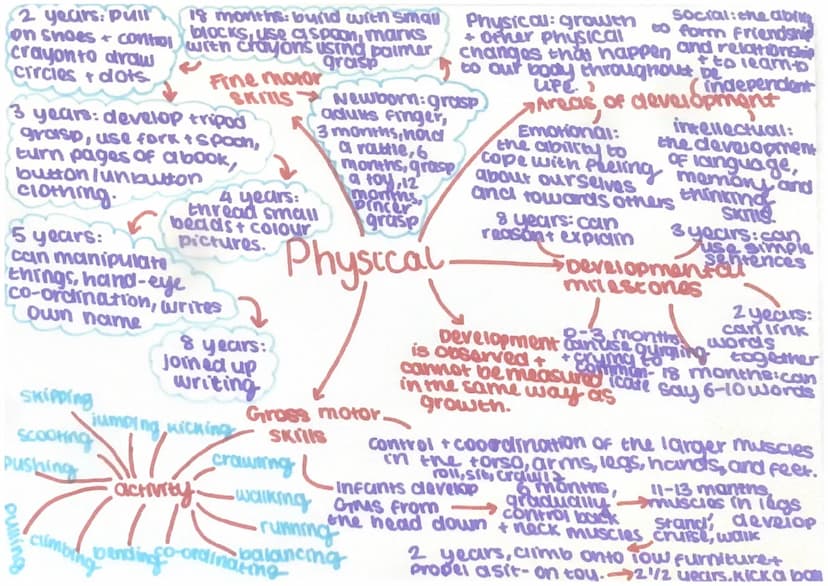 2 years: pull
on shoes + control
crayon to draw
circles + dots.
18 months: build with small
blocks, use a spoon, marks
with crayons using palmer
grasp
Fine motor
skills
Newborn: grasp
adults finger,
3 months, hold
a rattle, 6
months, grasp
a toy, 12
months,
pincer
grasp
3 years: develop tripod
grasp, use fork + spoon,
turn pages of a book,
button/unbutton
clothing.
4 years:
thread small
beads + colour
pictures.
5 years:
can manipulate
things, hand-eye
co-ordination, writes
own name
8 years:
joined up
writing
Physical
Physical: growth
+ other physical
changes that happen
to our body throughout
life.
social: the ability
to form friendship
and relationship
+ to learn to
be independent
Areas of development
Emotional:
the ability to
cope with feeling
about ourselves
and towards others
intellectual:
the development
of language,
memory and
thinking
skills.
Developmental
milestones
8 years: can
reason + explain
3 years: can
use simple
sentences
2 years:
can link
words
together
18 months: can
say 6-10 words
0-3 months:
can use
+ crying to
commun-
icate
Development
is observed +
cannot be measured
in the same way as
growth.
Gross motor
skills
control + coordination of the larger muscles
in the torso, arms, legs, hands, and feet.
Infants develop
GMS from
the head down
roll, sit, crawl
6 months,
gradually
control back
+ neck muscles
11-13 months,
muscles in legs
develop
stand, cruise, walk
2 years, climb onto low furniture +
propel a sit-on toy.
2 1/2 years, kick a ball
activity
skipping
jumping
kicking
scooting
crawling
pushing
walking
running
pulling
climbing
bending
co-ordinating
balancing